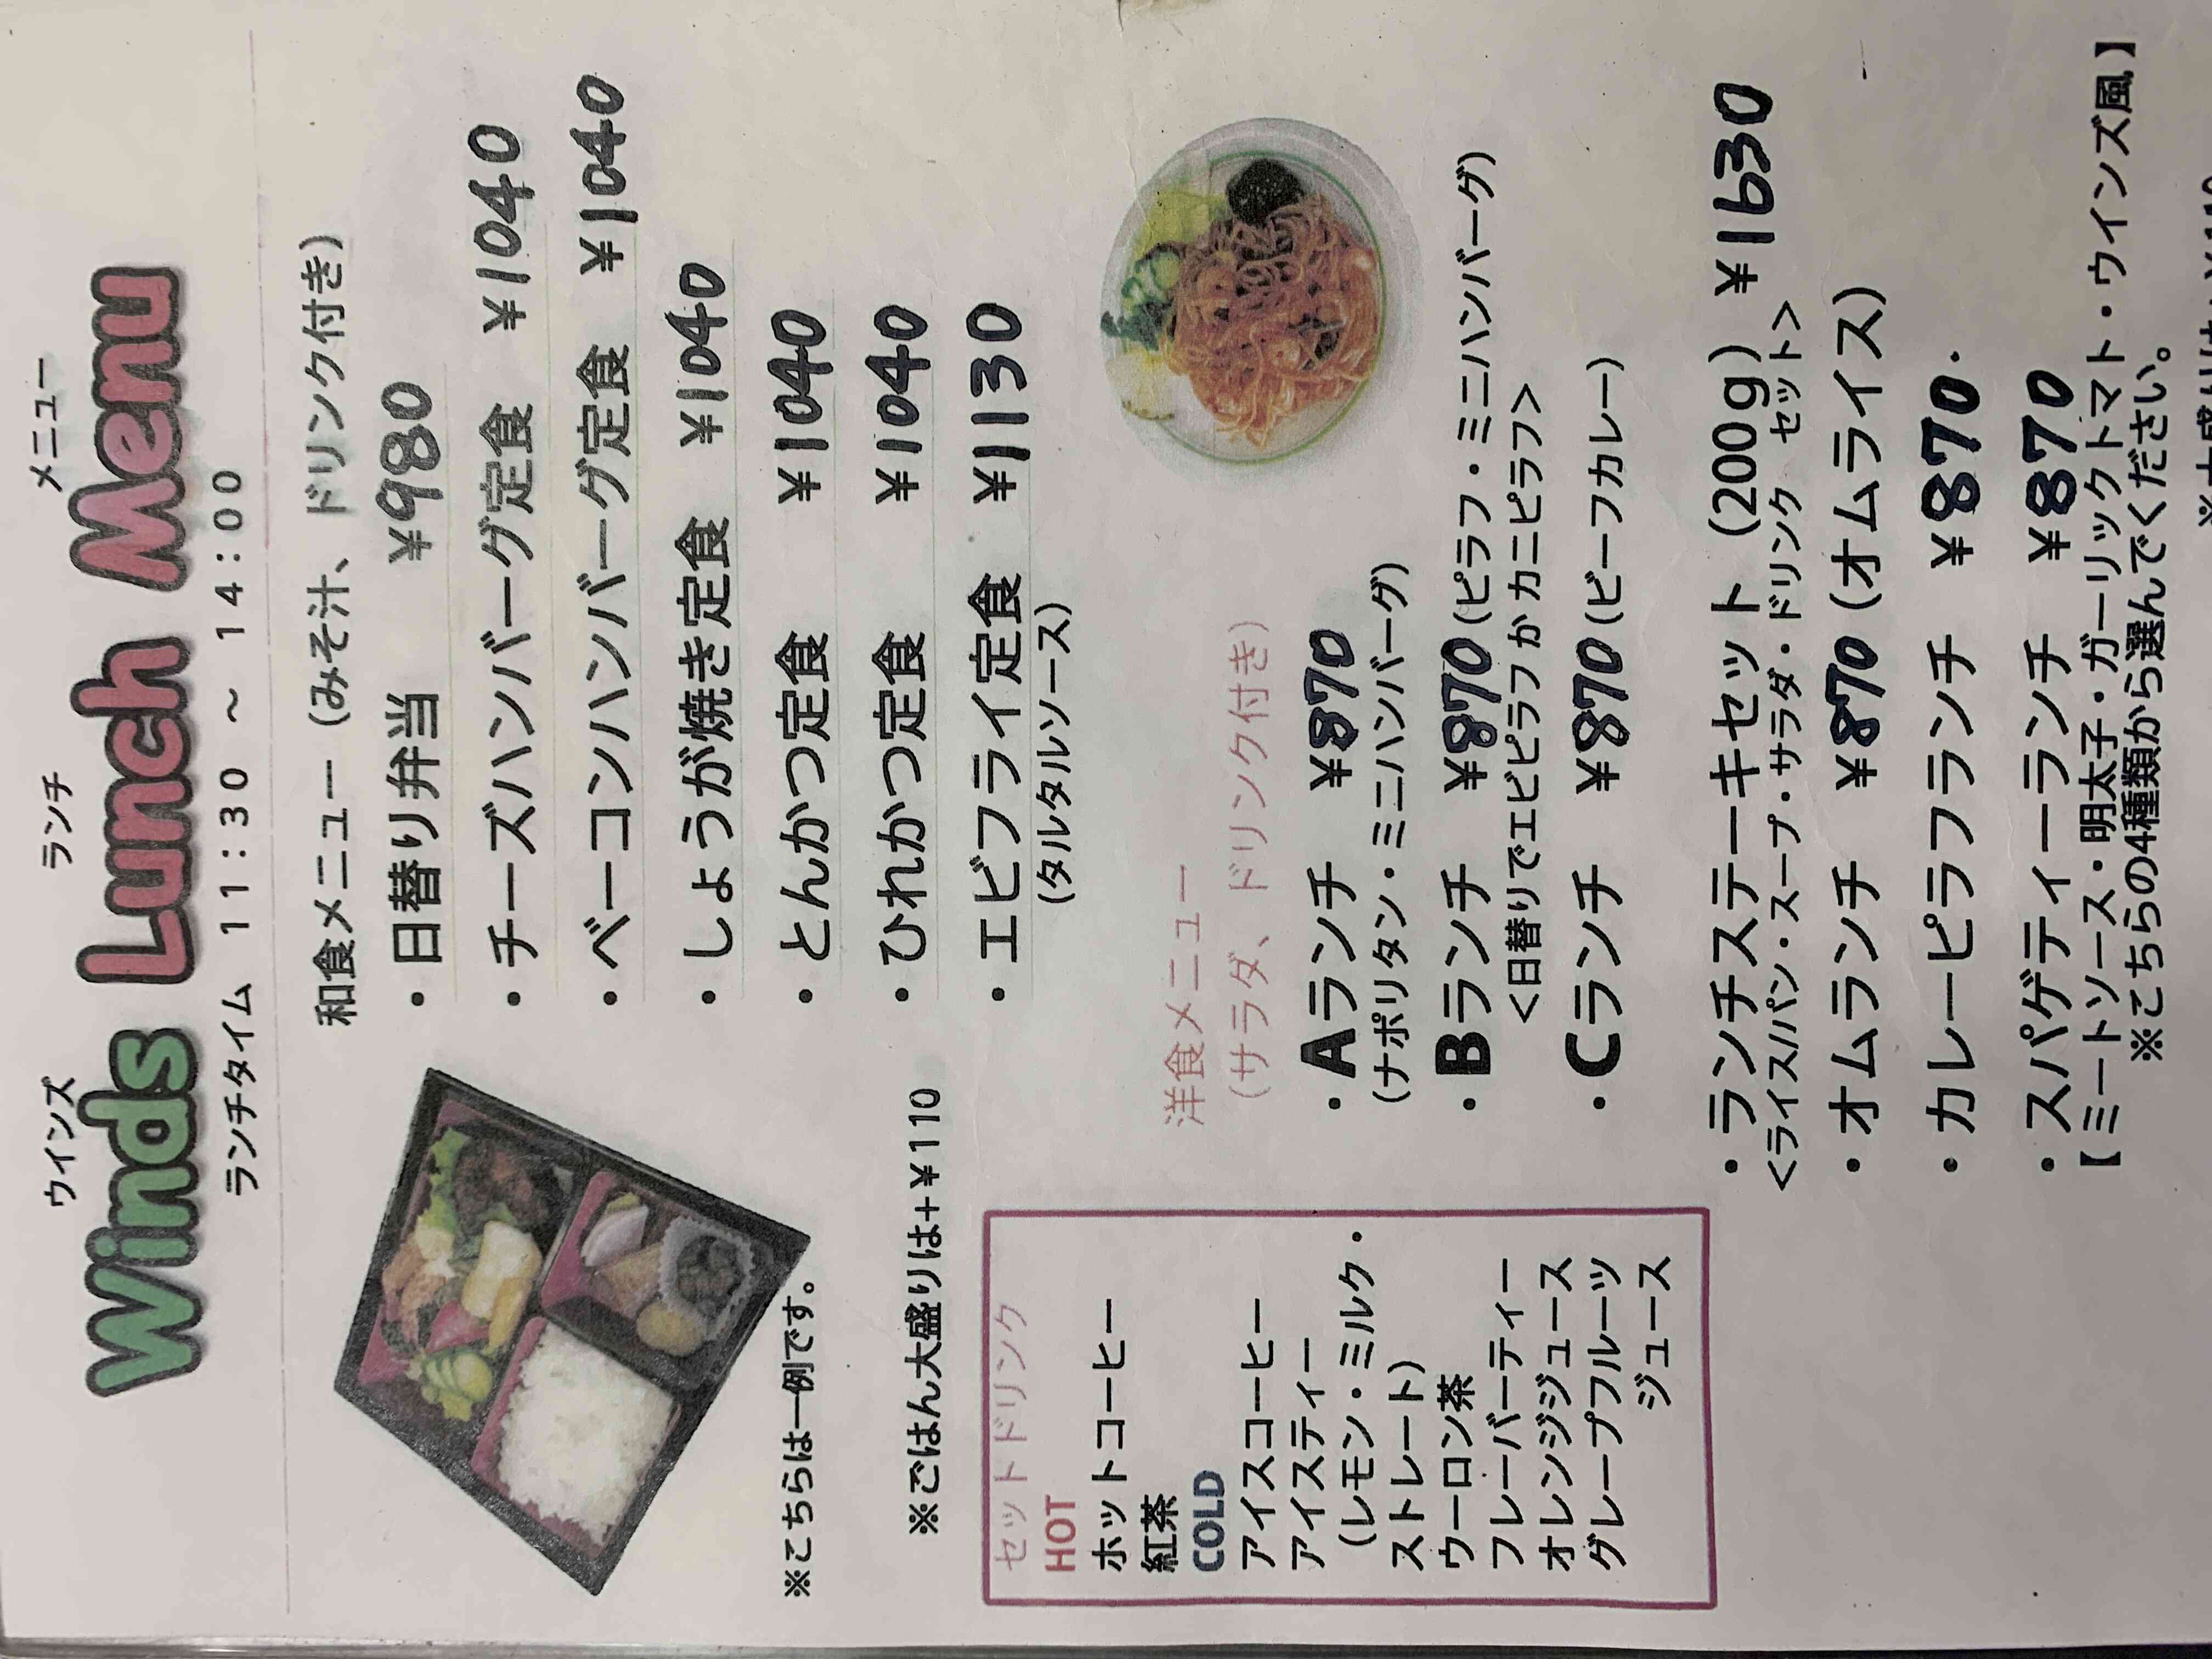 ウインズ ランチ メニュー
Winds Lunch Menu
ランチタイム 11:30 ～ 14:00
和食メニュー（みそ汁、ドリンク付き）
・日替り弁当 ￥980
・チーズハンバーグ定食 ￥1040
・ベーコンハンバーグ定食 ￥1040
・しょうが焼き定食 ￥1040
・とんかつ定食 ￥1040
・ひれかつ定食 ￥1040
・エビフライ定食 ￥1130
（タルタルソース）
※こちらは一例です。
※ごはん大盛りは+￥110
洋食メニュー
（サラダ、ドリンク付き）
・Aランチ ￥870
（ナポリタン・ミニハンバーグ）
・Bランチ ￥870（ピラフ・ミニハンバーグ）
＜日替りでエビピラフ か カニピラフ＞
・Cランチ ￥870（ビーフカレー）
・ランチステーキセット（200g）￥1630
＜ライス/パン・スープ・サラダ・ドリンク セット＞
・オムランチ ￥870（オムライス）
・カレーピラフランチ ￥870
・スパゲティーランチ ￥870
【ミートソース・明太子・ガーリックトマト・ウインズ風】
※こちらの4種類から選んでください。
セットドリンク
HOT
ホットコーヒー
紅茶
COLD
アイスコーヒー
アイスティー
（レモン・ミルク・
ストレート）
ウーロン茶
フレーバーティー
オレンジジュース
グレープフルーツ
ジュース